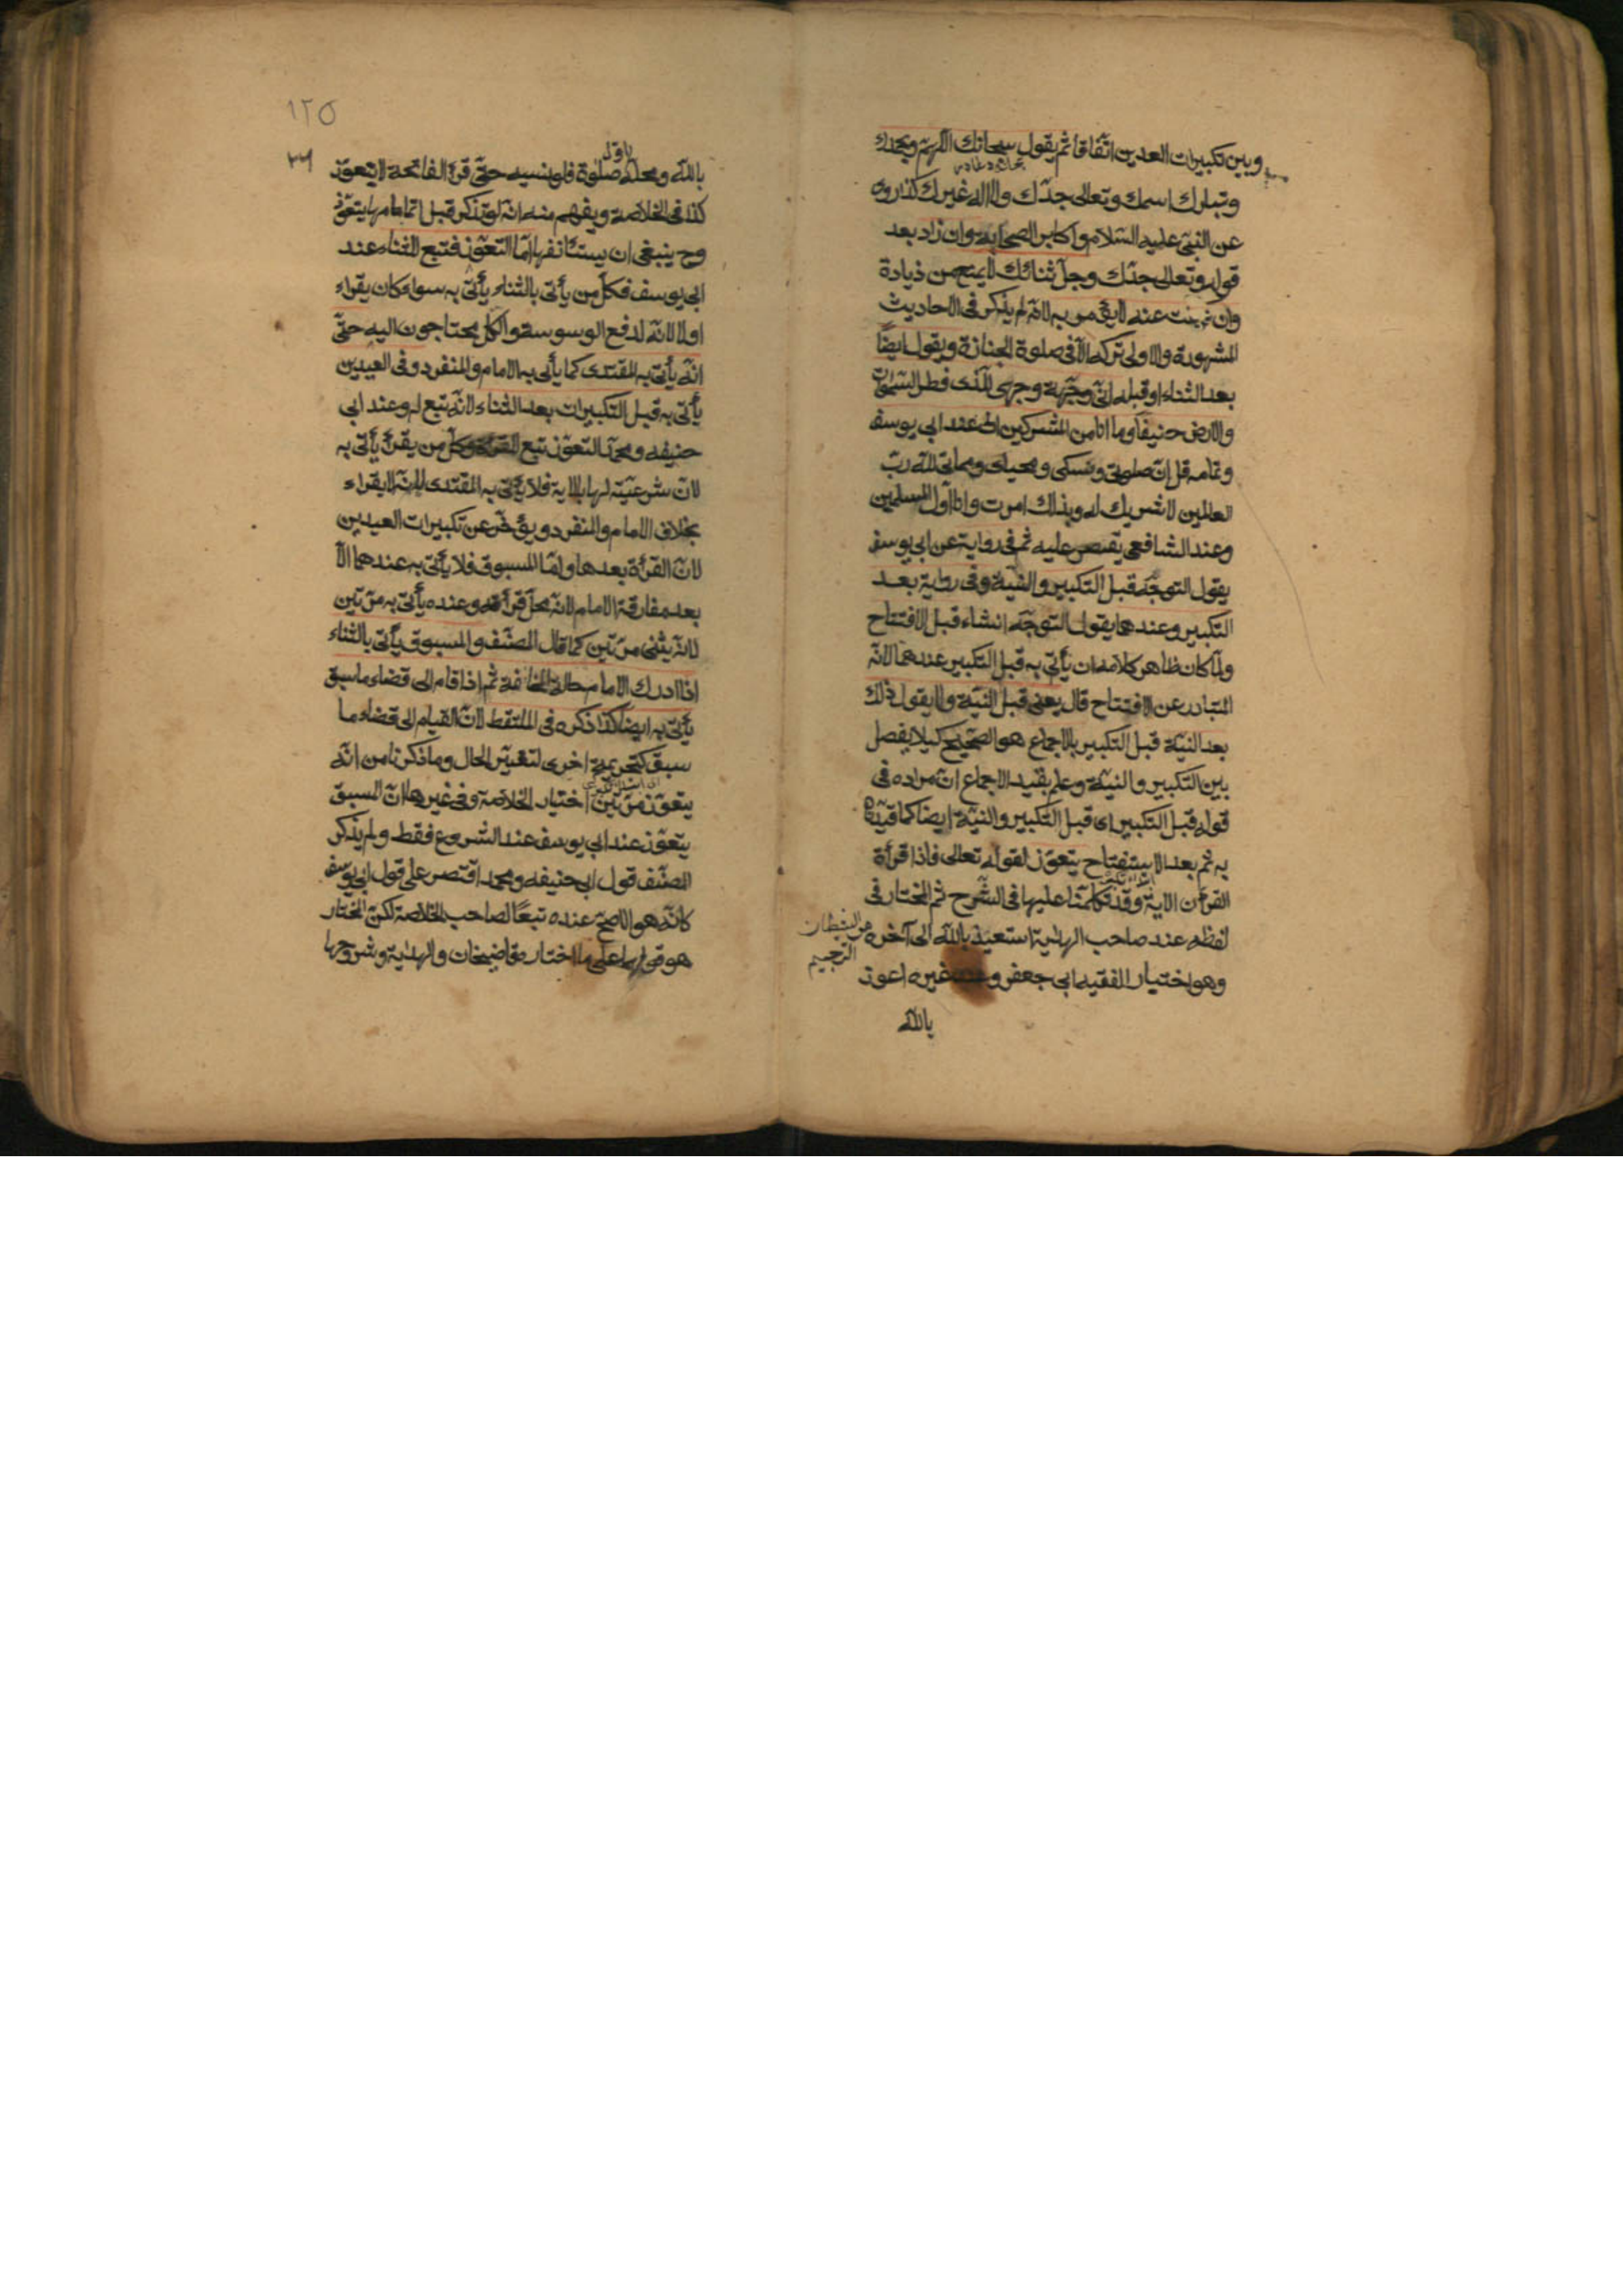 وبين تكبيرات العيدين اتفاقا ثم يقول سبحانك اللهم وبحمدك
وتبارك اسمك وتعالى جدك ولا اله غيرك كذا روى
عن النبى عليه السلام واكابر الصحابة وان زاد بعد
قوله وتعالى جدك وجل ثنائك لا يمنع من زيادة
وان سكت عنه لا يؤمر به لانه لم يذكر فى الاحاديث
المشهورة والاولى تركه الا فى صلوة الجنازة ويقول ايضا
بعد الثناء او قبله انى وجهت وجهى للذى فطر السموات
والارض حنيفا وما انا من المشركين الخ عند ابى يوسف
وتمامه قل ان صلوتى ونسكى ومحياى ومماتى لله رب
العالمين لا شريك له وبذلك امرت وانا اول المسلمين
وعند الشافعى يقتصر عليه ثم فى رواية عن ابى يوسف
يقول التوجه قبل التكبير والنية وفى رواية بعد
التكبير وعندهما يقول التوجه انشاء قبل الافتتاح
ولما كان ظاهر كلامه ان يأتى به قبل التكبير عندهما لانه
المتبادر عن الافتتاح قال يعنى قبل النية ولا يقول ذلك
بعد النية قبل التكبير بالاجماع هو الصحيح كيلا يفصل
بين التكبير والنية وعلم بقيد الاجماع ان مراده فى
قوله قبل التكبير اى قبل التكبير والنية ايضا كما قيدنا
به ثم بعد الاستفتاح يتعوذ لقوله تعالى فاذا قرأت
القرأن الاية وقد تكلمنا عليها فى الشرح ثم المختار فى
لفظه عند صاحب الهداية استعيذ بالله الى آخره
من الشيطان
الرجيم
وهو اختيار الفقيه ابى جعفر وعند غيره اعوذ
بالله
١٢٥
بالله ومحله صلوة فلو نسيه حتى قرأ الفاتحة لا يتعوذ
كذا فى الخلاصة ويفهم منه انه لو تذكر قبل اتمامها يتعوذ
وح ينبغى ان يستأنفها اما التعوذ فتبع للثناء عند
ابى يوسف فكل من يأتى بالثناء يأتى به سواء كان يقراء
او لا لانه لدفع الوسوسة والكل يحتاجون اليه حتى
انه يأتى به المقتدى كما يأتى به الامام والمنفرد وفى العيدين
يأتى به قبل التكبيرات بعد الثناء لانه تبع له وعند ابى
حنيفه ومحمد التعوذ تبع للقرأة فكل من يقرأ يأتى به
لان شرعيته لها بالاية فلا يأتى به المقتدى لانه لا يقراء
بخلاف الامام والمنفرد ويؤخر عن تكبيرات العيدين
لان القرأة بعدها واما المسبوق فلا يأتى به عندهما الا
بعد مفارقة الامام لانه محل قرأته وعنده يأتى به مرتين
لانه يثنى مرتين كما قال المصنف والمسبوق يأتى بالثناء
اذا ادرك الامام حالة المخافتة ثم اذا قام الى قضاء ما سبق
يأتى به ايضا كذا ذكره فى الملتقط لان القيام الى قضاء ما
سبق كتحريمة اخرى لتغير الحال وما ذكرنا من انه
يتعوذ مرتين اختيار الخلاصة وفى غيرها ان السبق
يتعوذ عند ابى يوسف عند الشروع فقط ولم يذكر
المصنف قول ابى حنيفه ومحمد اقتصر على قول ابى يوسف
كانه هو الاصح عنده تبعا لصاحب الخلاصة لكن المختار
هو قولهما على ما اختاره قاضيخان والهداية وشروحها